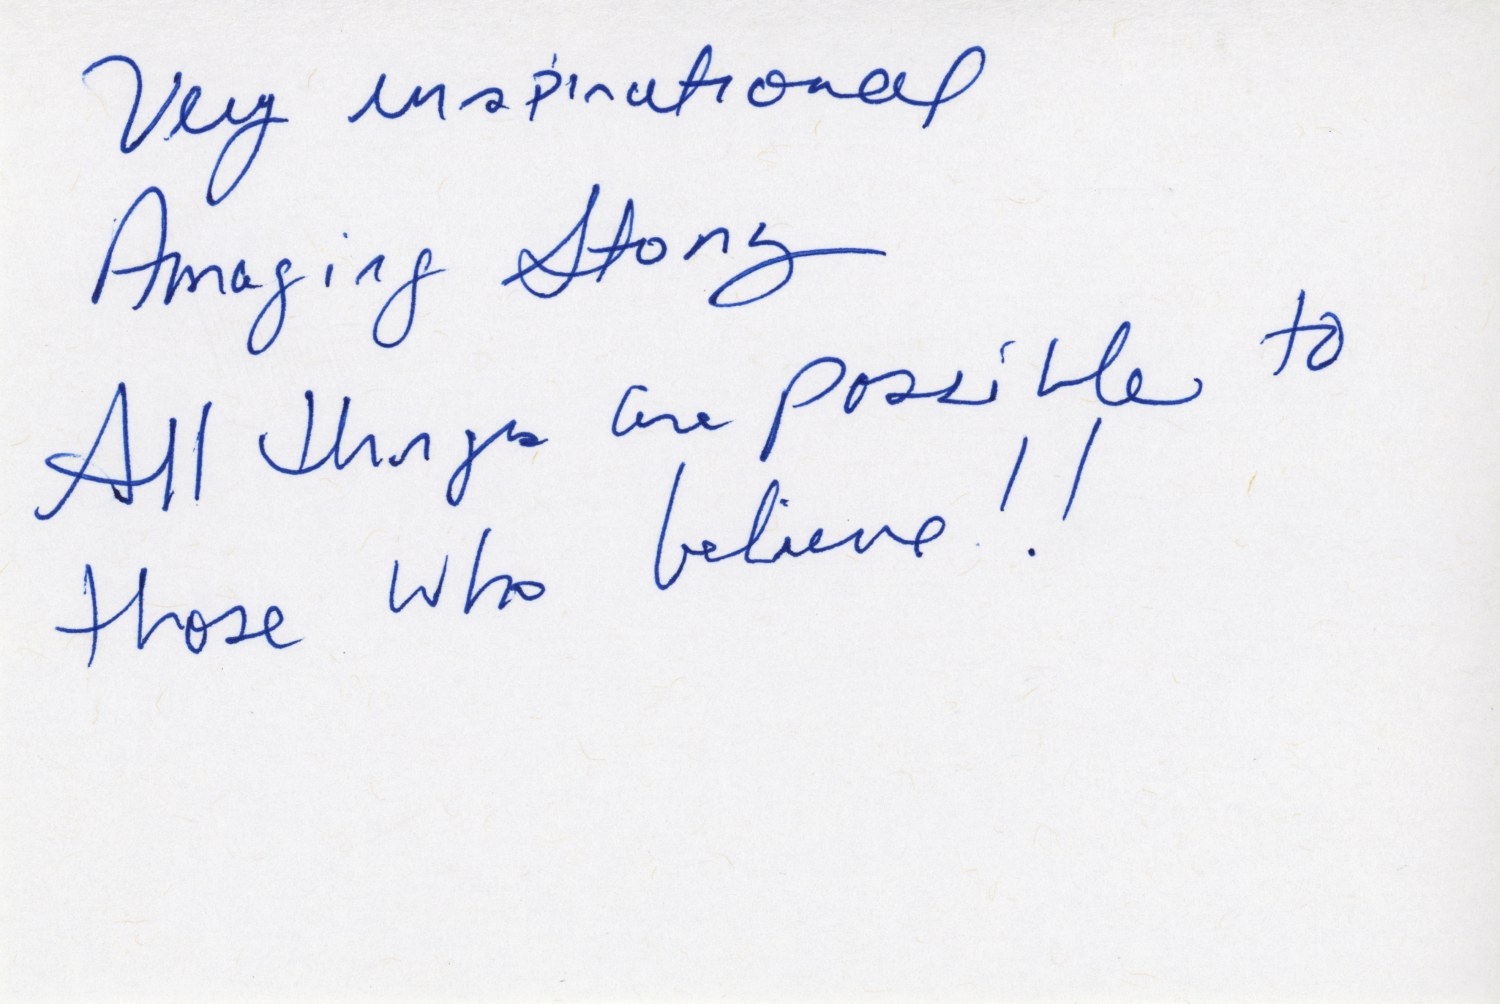 Very inspirational
Amazing Story
All things are possible to
those who believe!!